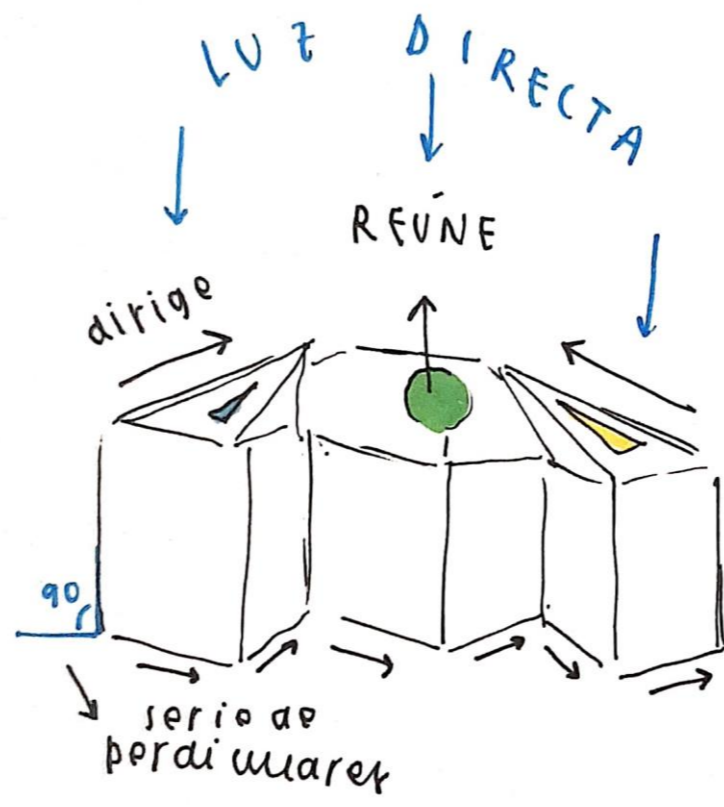 LUZ DIRECTA
REÚNE
dirige
90
serie de
perdiculares